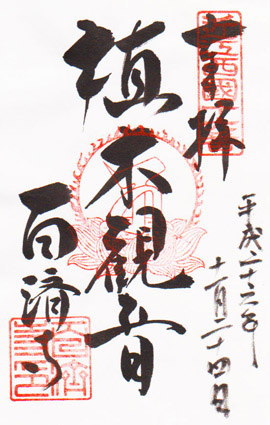 奉拝
平成二十六年
十一月二十四日
植木観音
百済寺